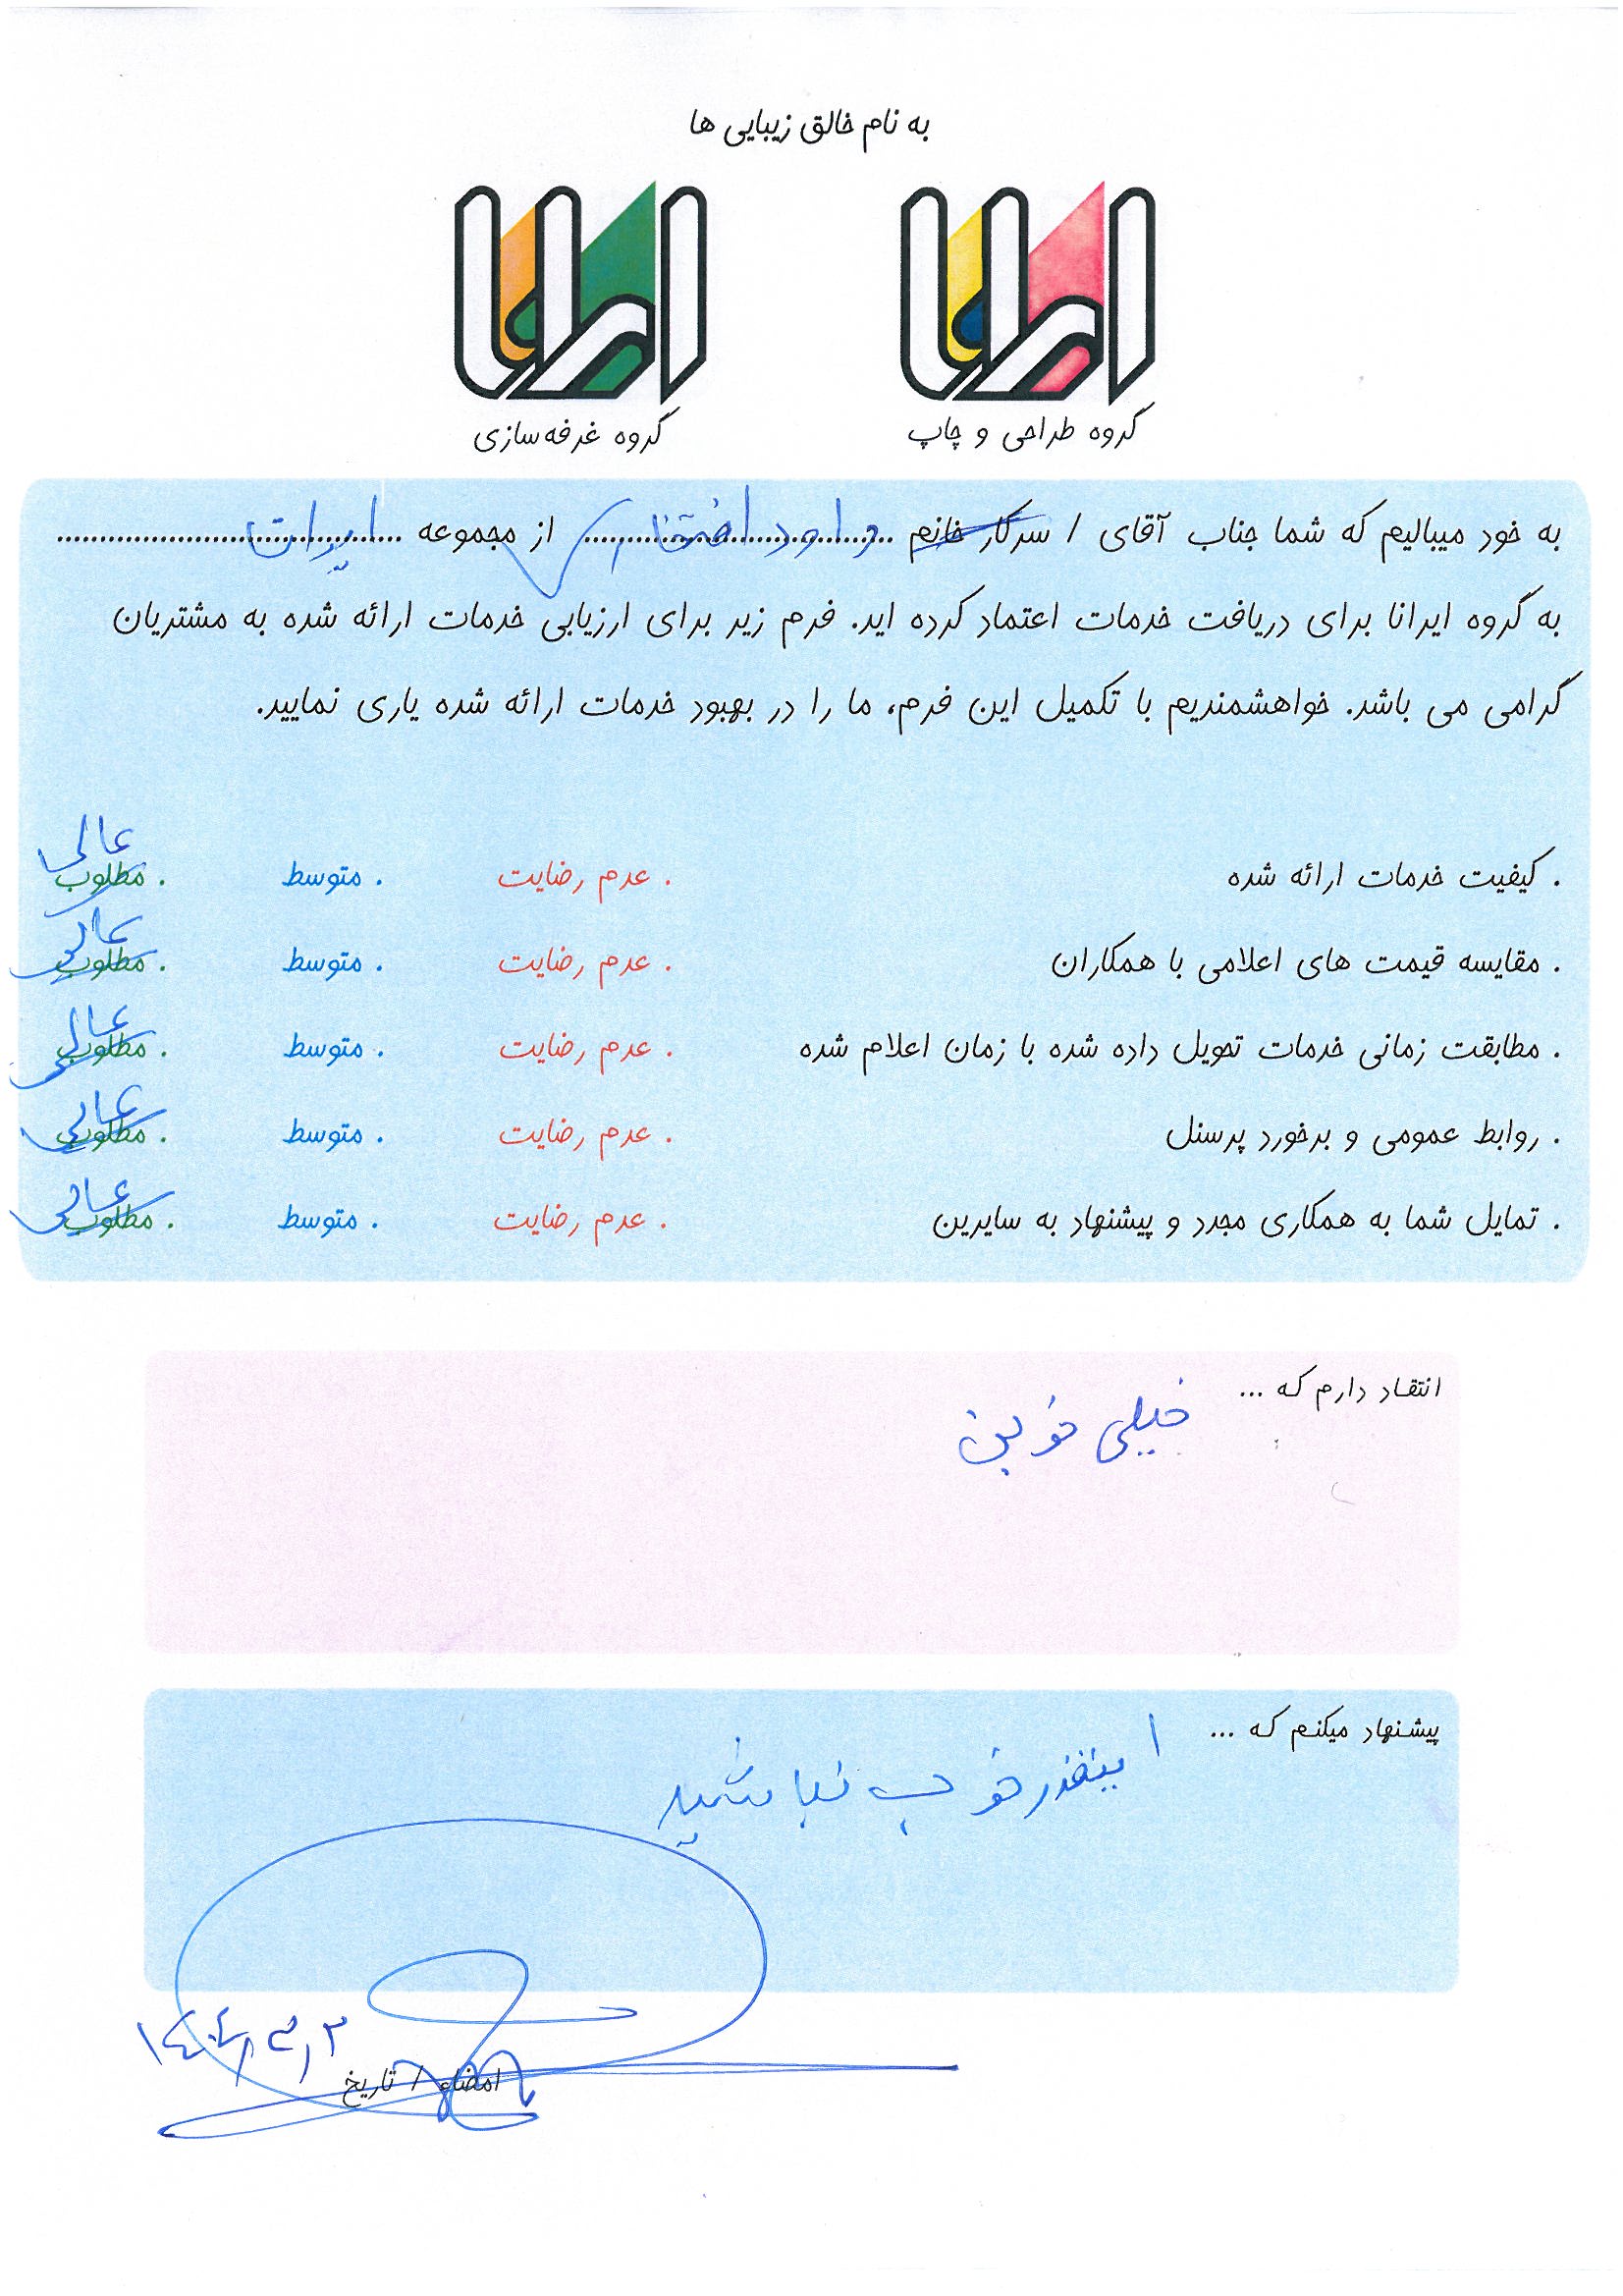 به نام خالق زیبایی ها
ایرانا ایرانا
گروه طراحی و چاپ گروه غرفه‌سازی
به خود میبالیم که شما جناب آقای / سرکار خانم ............ از مجموعه ............
به گروه ایرانا برای دریافت خدمات اعتماد کرده اید. فرم زیر برای ارزیابی خدمات ارائه شده به مشتریان
گرامی می باشد. خواهشمندیم با تکمیل این فرم، ما را در بهبود خدمات ارائه شده یاری نمایید.
عالی
. کیفیت خدمات ارائه شده . عدم رضایت . متوسط . مطلوب
عالی
. مقایسه قیمت های اعلامی با همکاران . عدم رضایت . متوسط . مطلوب
عالی
. مطابقت زمانی خدمات تحویل داده شده با زمان اعلام شده . عدم رضایت . متوسط . مطلوب
عالی
. روابط عمومی و برخورد پرسنل . عدم رضایت . متوسط . مطلوب
عالی
. تمایل شما به همکاری مجدد و پیشنهاد به سایرین . عدم رضایت . متوسط . مطلوب
انتقاد دارم که ...
خیلی خوبین
پیشنهاد میکنم که ...
اینقدر خوب نباشید
امضاء / تاریخ